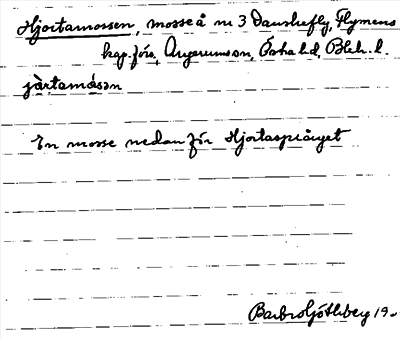 Hjortamossen, mosse å nr 3 Danskefly, Flymens
kap.förs, Augerumssn, Östra hd, Blek. l.
jàrtamósən
En mosse nedanför Hjortasprånget
Barbro Ljöthberg 19